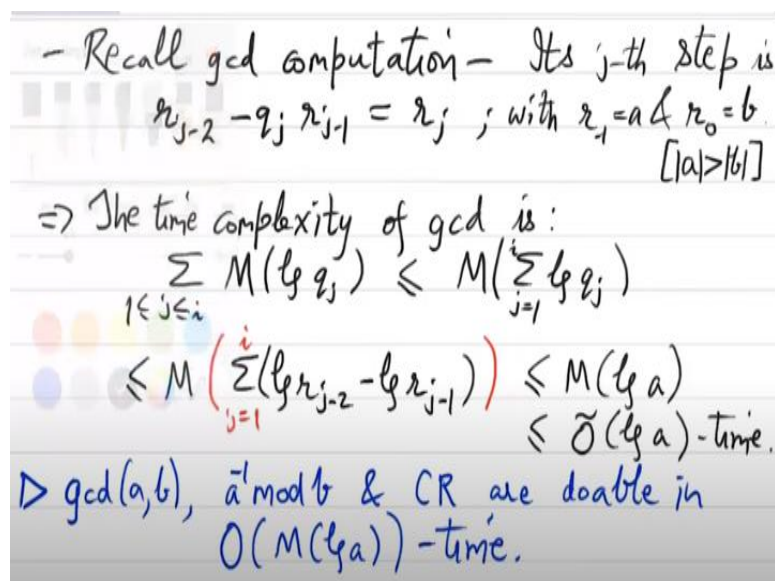 - Recall gcd computation - Its j-th step is
r_{j-2} - q_j r_{j-1} = r_j ; with r_{-1}=a & r_0=b.
[|a|>|b|]
=> The time complexity of gcd is:
∑_{1≤j≤i} M(lg q_j) ≤ M(∑_{j=1}^{i} lg q_j)
≤ M(∑_{j=1}^{i}(lg r_{j-2} - lg r_{j-1})) ≤ M(lg a)
≤ Õ(lg a)-time.
▷ gcd(a,b), a^{-1} mod b & CR are doable in
O(M(lg a))-time.